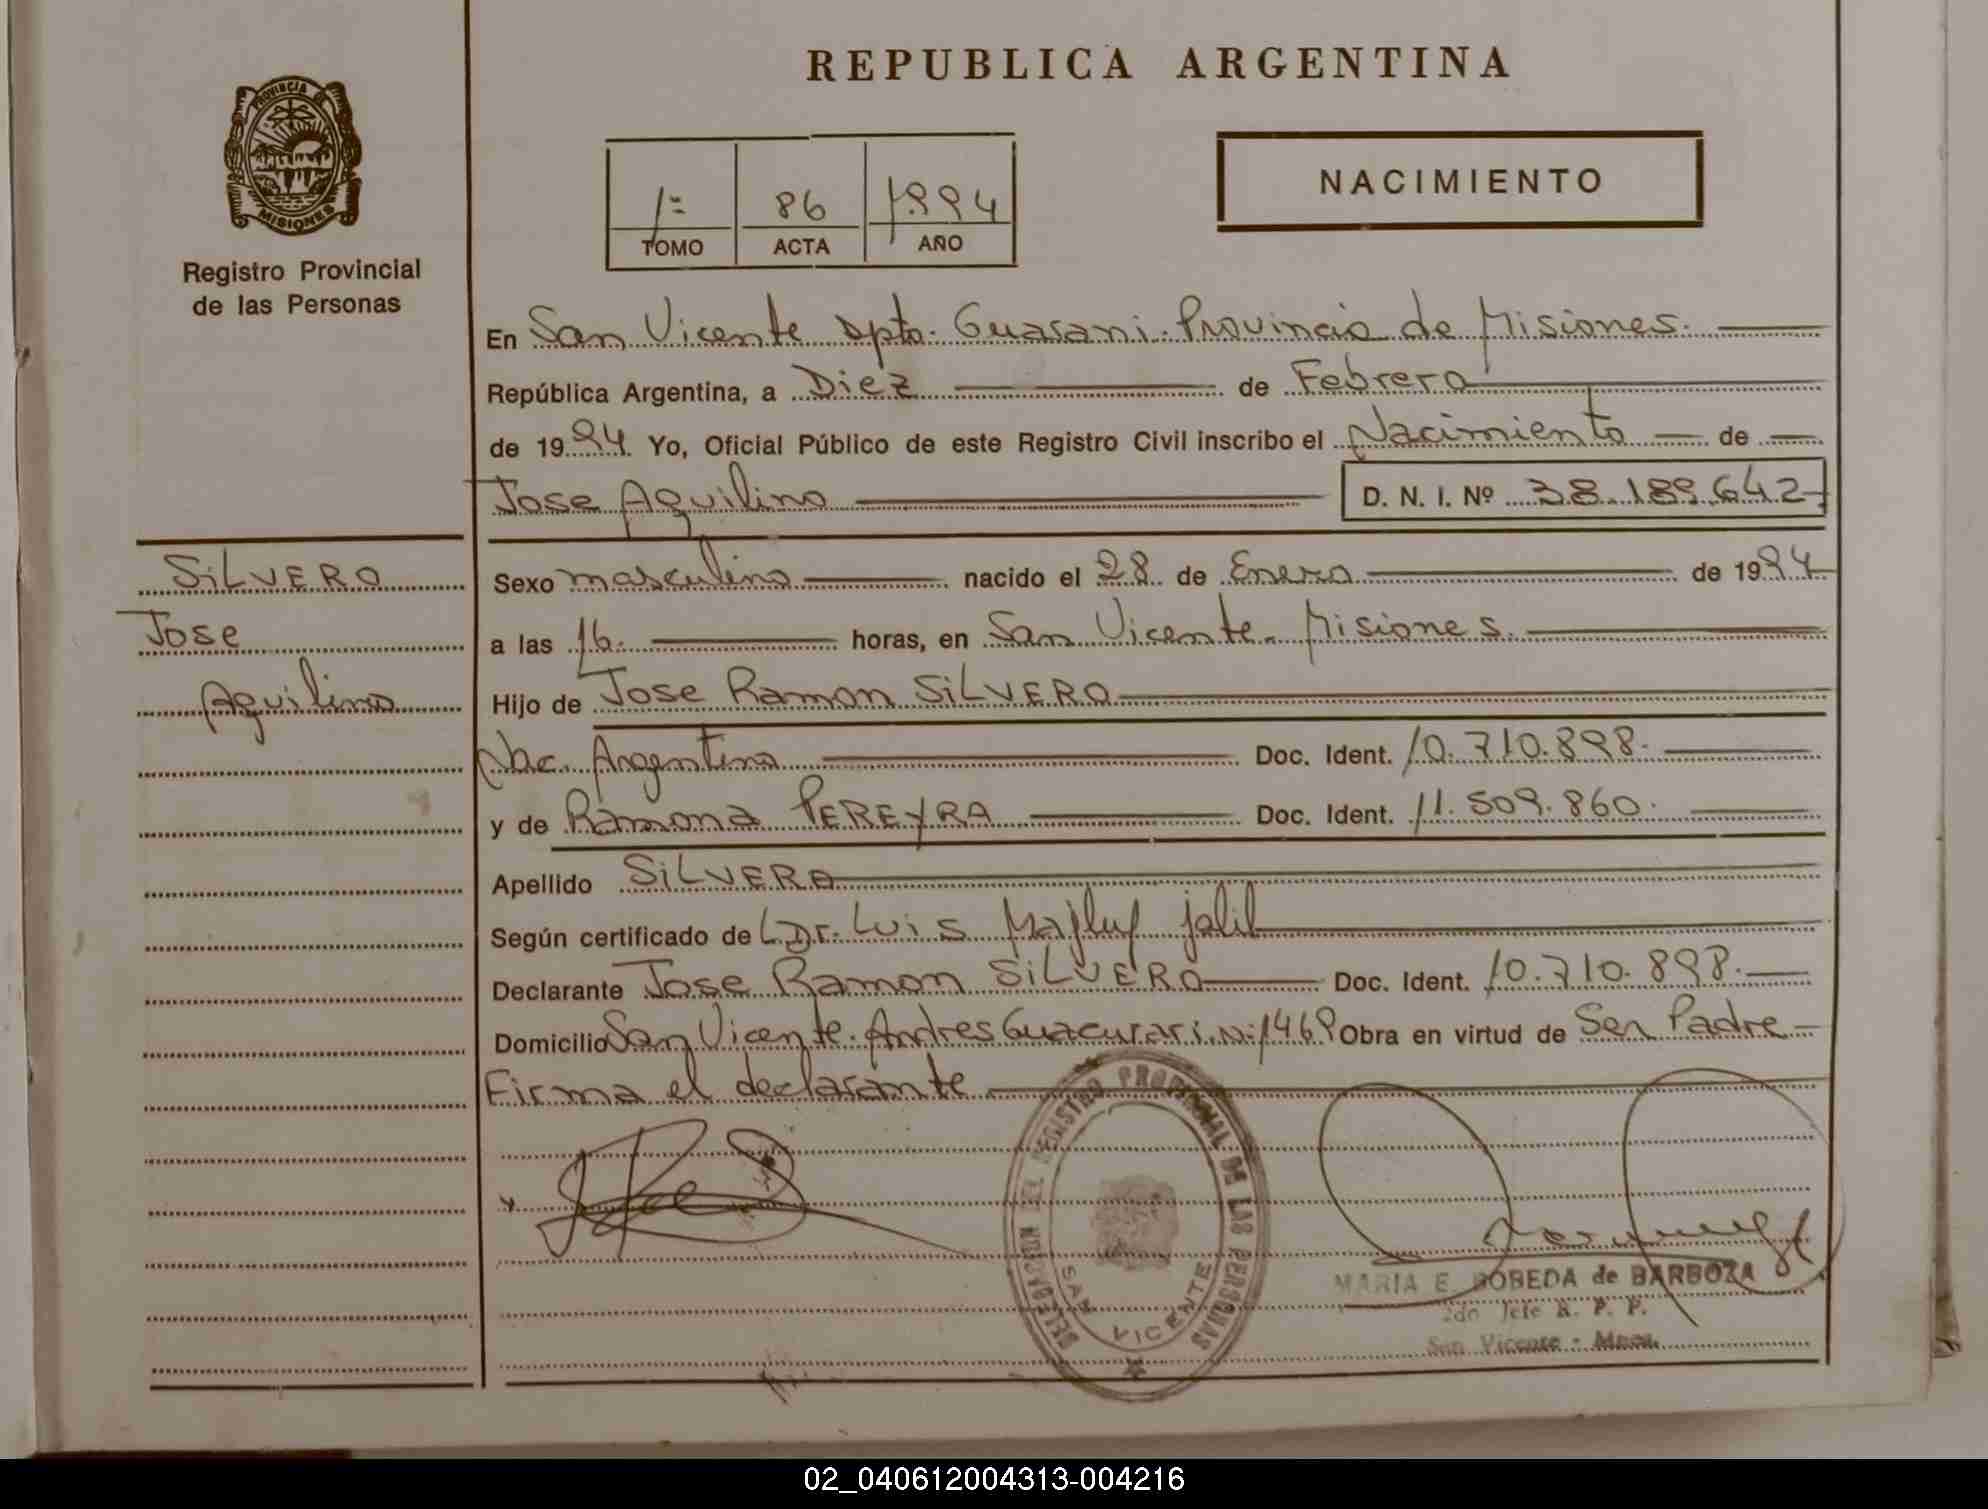 PROVINCIA DE
MISIONES
Registro Provincial
de las Personas
REPUBLICA ARGENTINA
1º 86 1994
TOMO ACTA AÑO
NACIMIENTO
En San Vicente Dpto. Guarani. Provincia de Misiones.
República Argentina, a Diez de Febrero
de 1994 Yo, Oficial Público de este Registro Civil inscribo el Nacimiento de
Jose Aquilino D. N. I. Nº 38.189.642
SiLVERO
Jose
Aquilino
Sexo masculino nacido el 28 de Enero de 1994
a las 16. horas, en San Vicente. Misiones.
Hijo de Jose Ramon SiLVERO
Nac. Argentina Doc. Ident. 10.710.898.
y de Ramona PEREYRA Doc. Ident. 11.509.860.
Apellido SiLVERO
Según certificado de Dr. Luis Majluf Jalil
Declarante Jose Ramon SiLVERO Doc. Ident. 10.710.898.
Domicilio San Vicente. Andres Guacurari. Nº 1469 Obra en virtud de Ser Padre
Firma el declarante
REGISTRO PROVINCIAL DE LAS PERSONAS
SAN VICENTE
MARIA E. BOBEDA de BARBOZA
2do Jefe R. P. P.
San Vicente - Mnes.
02_040612004313-004216